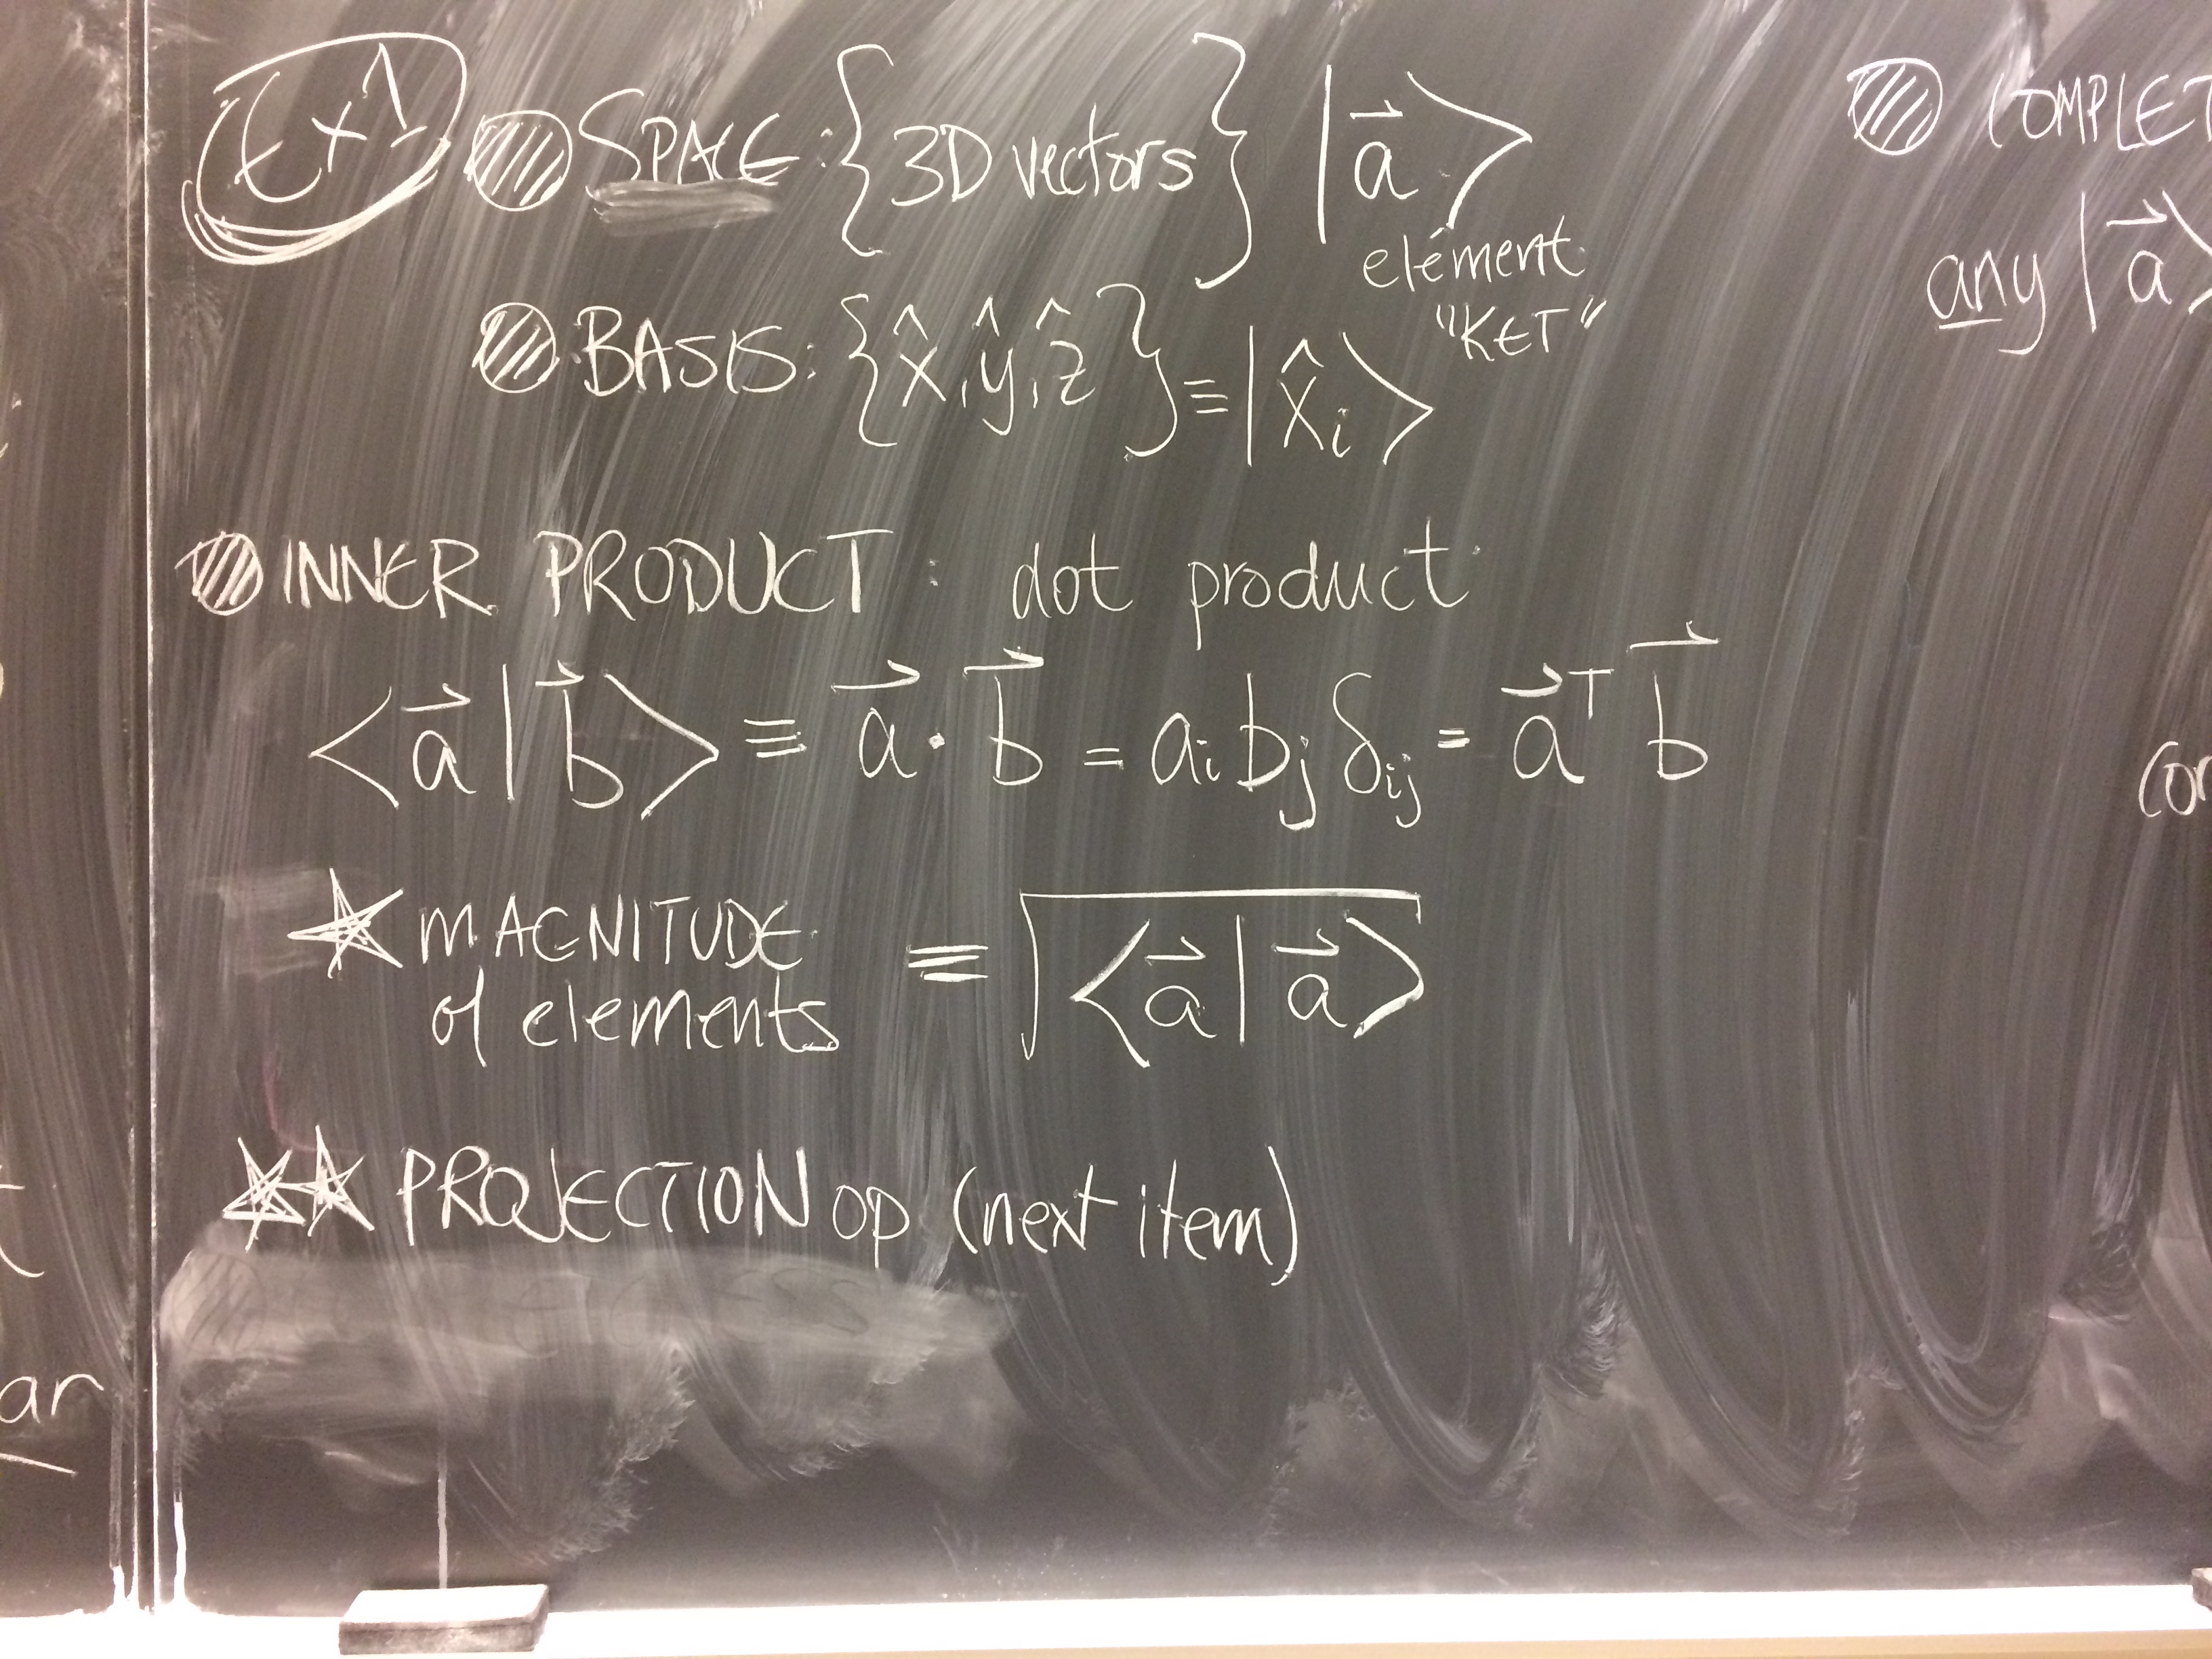 Ex 1
SPACE: {3D vectors} |a⃗>
element
"KET"
BASIS: {x̂, ŷ, ẑ} ≡ |x̂ᵢ>
INNER PRODUCT: dot product
<a⃗|b⃗> ≡ a⃗·b⃗ = aᵢbⱼδᵢⱼ = a⃗ᵀ b⃗
★ MAGNITUDE ≡ √<a⃗|a⃗>
of elements
★★ PROJECTION op (next item)
COMPLET
any |a⃗>
ar